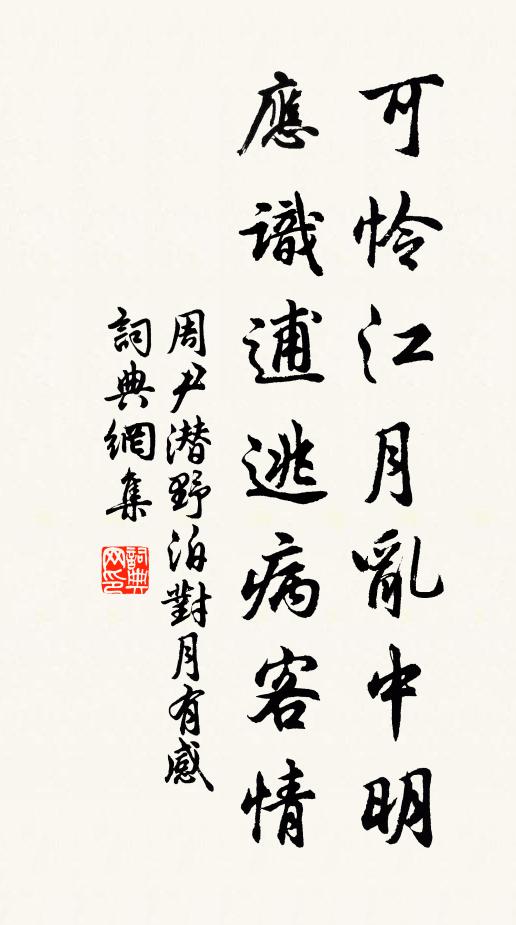 可憐江月亂中明
應識逋逃病客情
周尹潛野泊對月有感
詞典網集
詞典网印